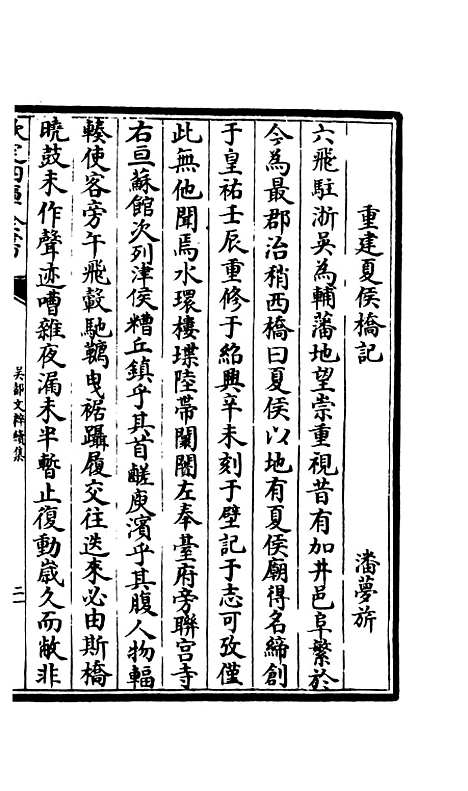 重建夏侯橋記
潘夢旂
六飛駐浙吳為輔藩地望崇重視昔有加井邑阜繁於
今為最郡治稍西橋曰夏侯以地有夏侯廟得名締創
于皇祐壬辰重修于紹興辛未刻于壁記于志可攷僅
此無他聞焉水環樓堞陸帶闤闠左奉臺府旁聯宫寺
右亘蘇館次列津侯糟丘鎮乎其首鹺庾濱乎其腹人物輻
輳使客旁午飛轂馳鞿曳裾躡履交往迭來必由斯橋
曉鼓未作聲迹嘈雜夜漏未半暫止復動嵗久而敝非
欽定四庫全書
吴都文粹續集
二